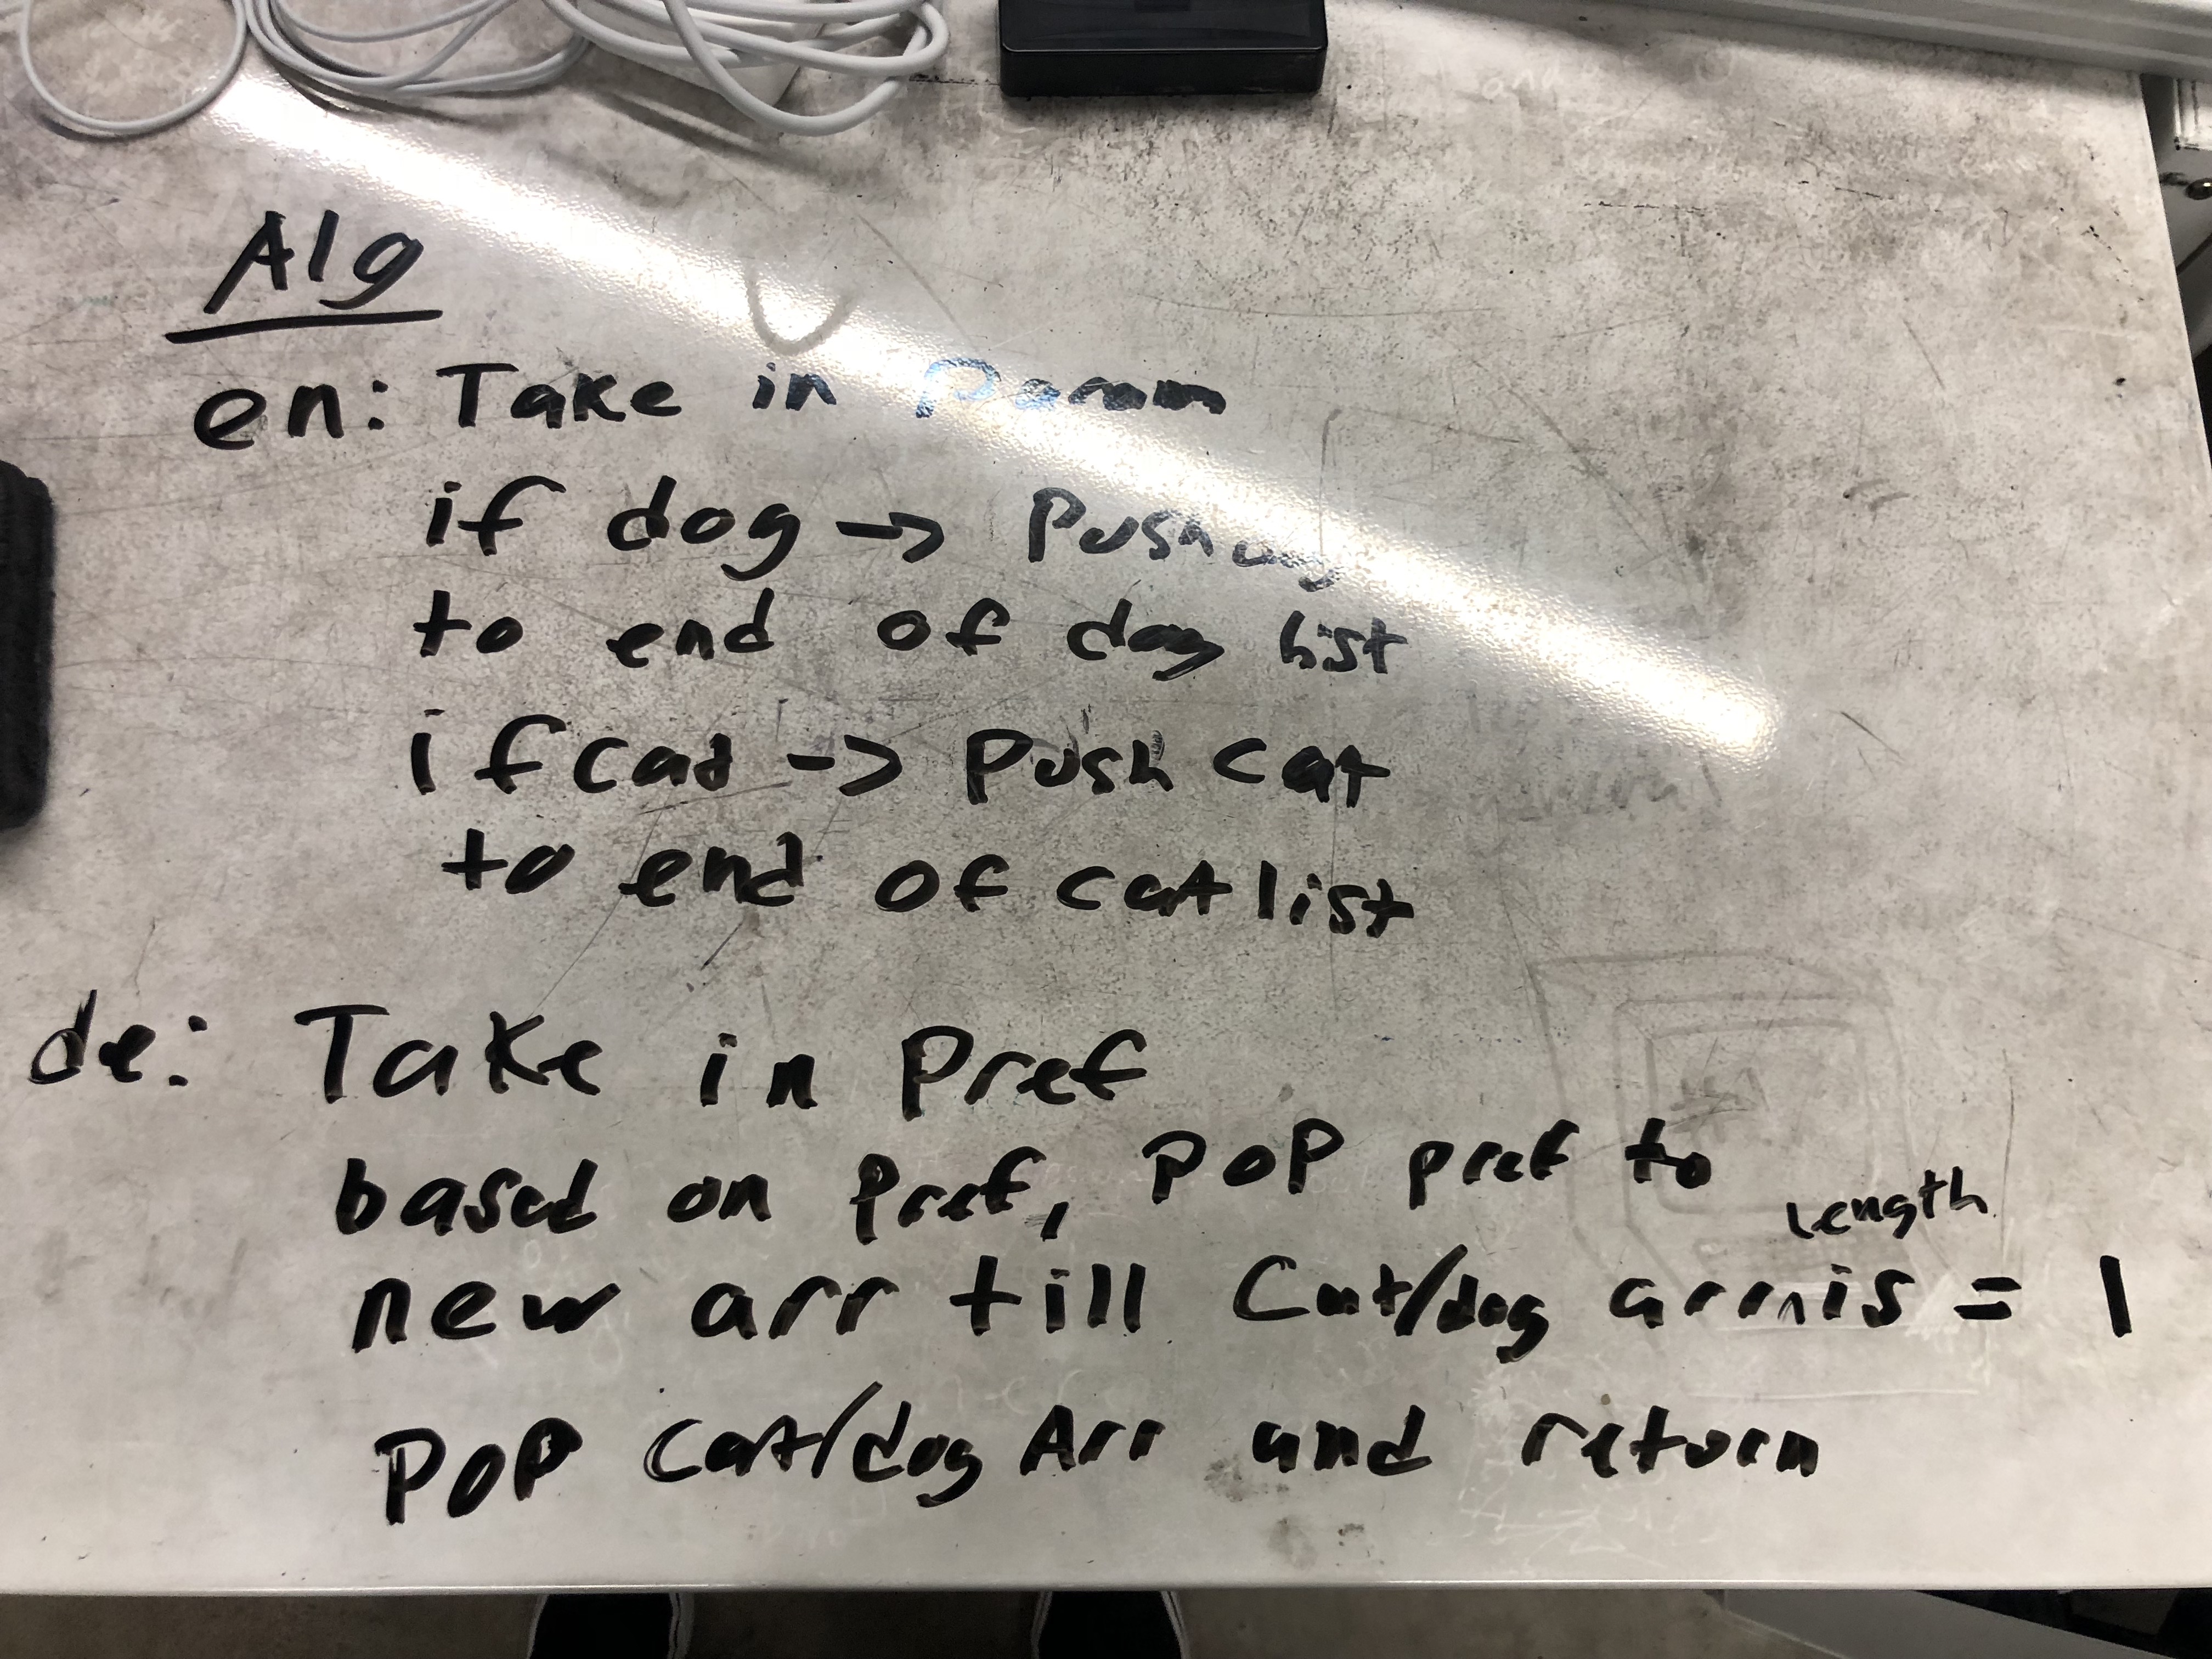 Alg
en: Take in Param
if dog -> Push dog
to end of dog list
if cat -> Push cat
to end of cat list
de: Take in Pref
based on Pref, POP pref to
length
new arr till Cat/dog arr ^ is = 1
POP Cat/dog Arr and return